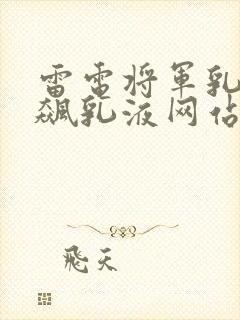 雷电将军乳
飙乳液网站
飛天